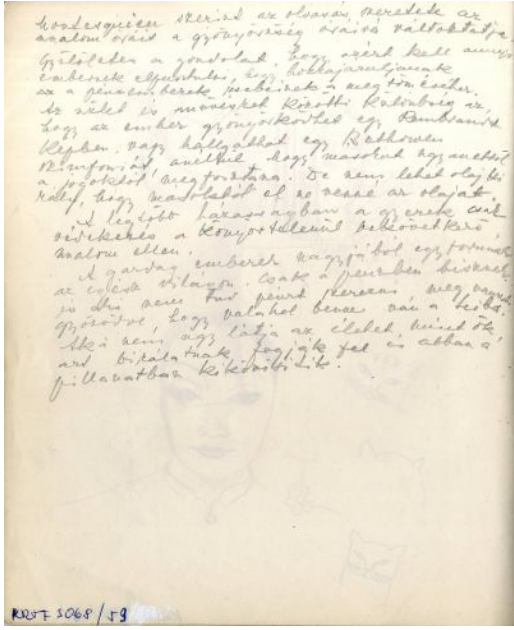 Montesquieu szerint az olvasás szeretete az
unalom óráit a gyönyörűség óráivá változtatja.
Gyűlöletes a gondolat, hogy azért kell annyi
embernek elpusztulni, hogy hozzájáruljanak
a pénzemberek zsebeinek a megtöméséhez.
Az üzlet és művészet közötti különbség az,
hogy az ember gyönyörködhet egy Rembrandt
képben, vagy hallgathat egy Bethowen
szimfoniát anélkül, hogy másokat ugyanettől
a jogoktól megfosztana. De nem lehet olajki
rály, hogy másoktól el ne venné az olajat.
A legtöbb házasságban a gyerek csak
védekezés a könyörtelenül bekövetkező
unalom ellen.
A gazdag emberek nagyjából egyformák
az egész világon. Csak a pénzben bíznak
és aki nem tud pénzt szerezni meg vannak
győződve, hogy valahol benne van a hiba.
Aki nem úgy látja az életet, mint ők
azt bírálatnak fogják fel és abban a
pillanatban kiközösítik.
KRJF 3068/59